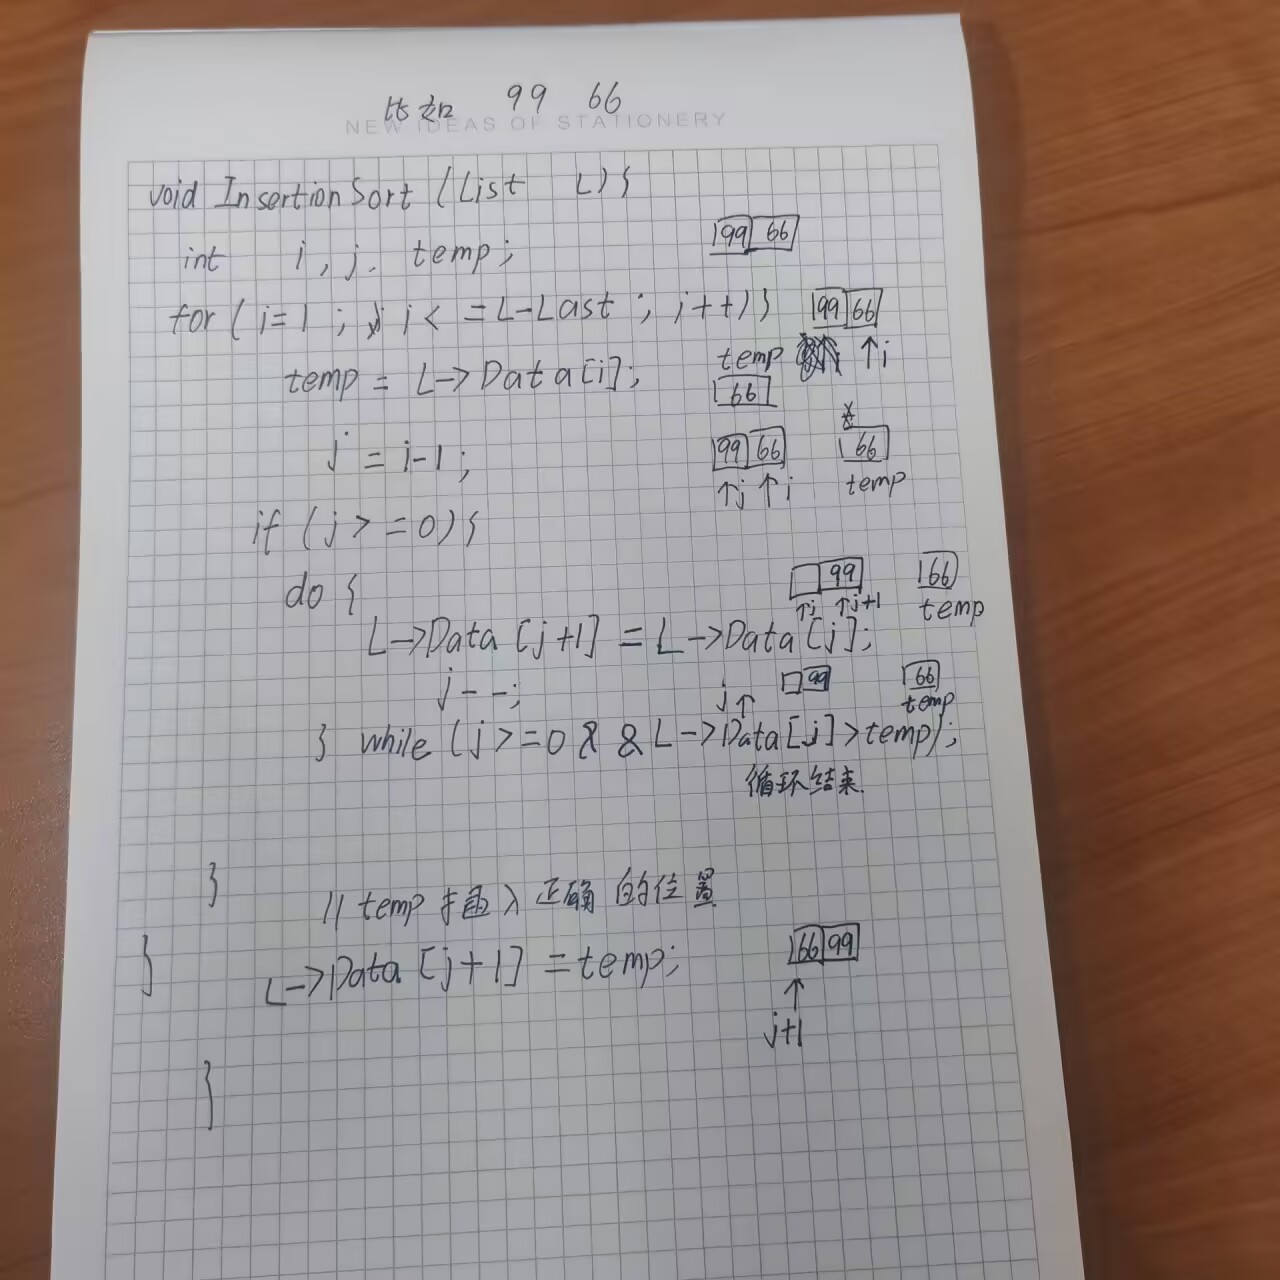 比如 99 66
NEW IDEAS OF STATIONERY
void InsertionSort (List L){
int i, j, temp;
99 66
for (i=1 ; i< =L-Last ; i++) }
99 66
↑i
temp = L->Data[i];
temp
66
j = i-1 ;
99 66
↑j ↑i
66
temp
if (j > =0) {
do {
99
↑j ↑j+1
66
temp
L->Data [j+1] = L->Data [j];
j - -;
j↑
99
66
temp
} while (j >=0 & & L->Data[j]>temp);
循环结束.
}
// temp 插入正确的位置
}
L->Data [j+1] =temp;
66 99
↑
j+1
}